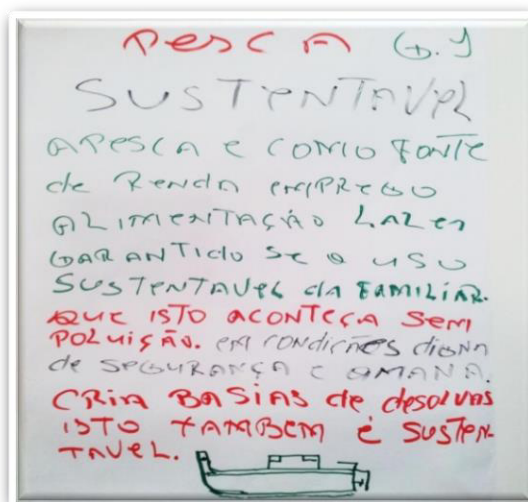 PESCA G.1
SUSTENTAVEL
APESCA E COMO FONTE
de RENDA EMPREGO
ALIMENTAÇÃO LAZER
GARANTIDO SE O USO
SUSTENTAVEL da FAMILIAR.
QUE ISTO ACONTEÇA SEM
POLUIÇÃO. EM CONDIÇÕES DIGNA
de SEGURANÇA E OMANA.
CRIA BASIAS de desovas
ISTO TAMBEM É SUSTEN-
TAVEL.